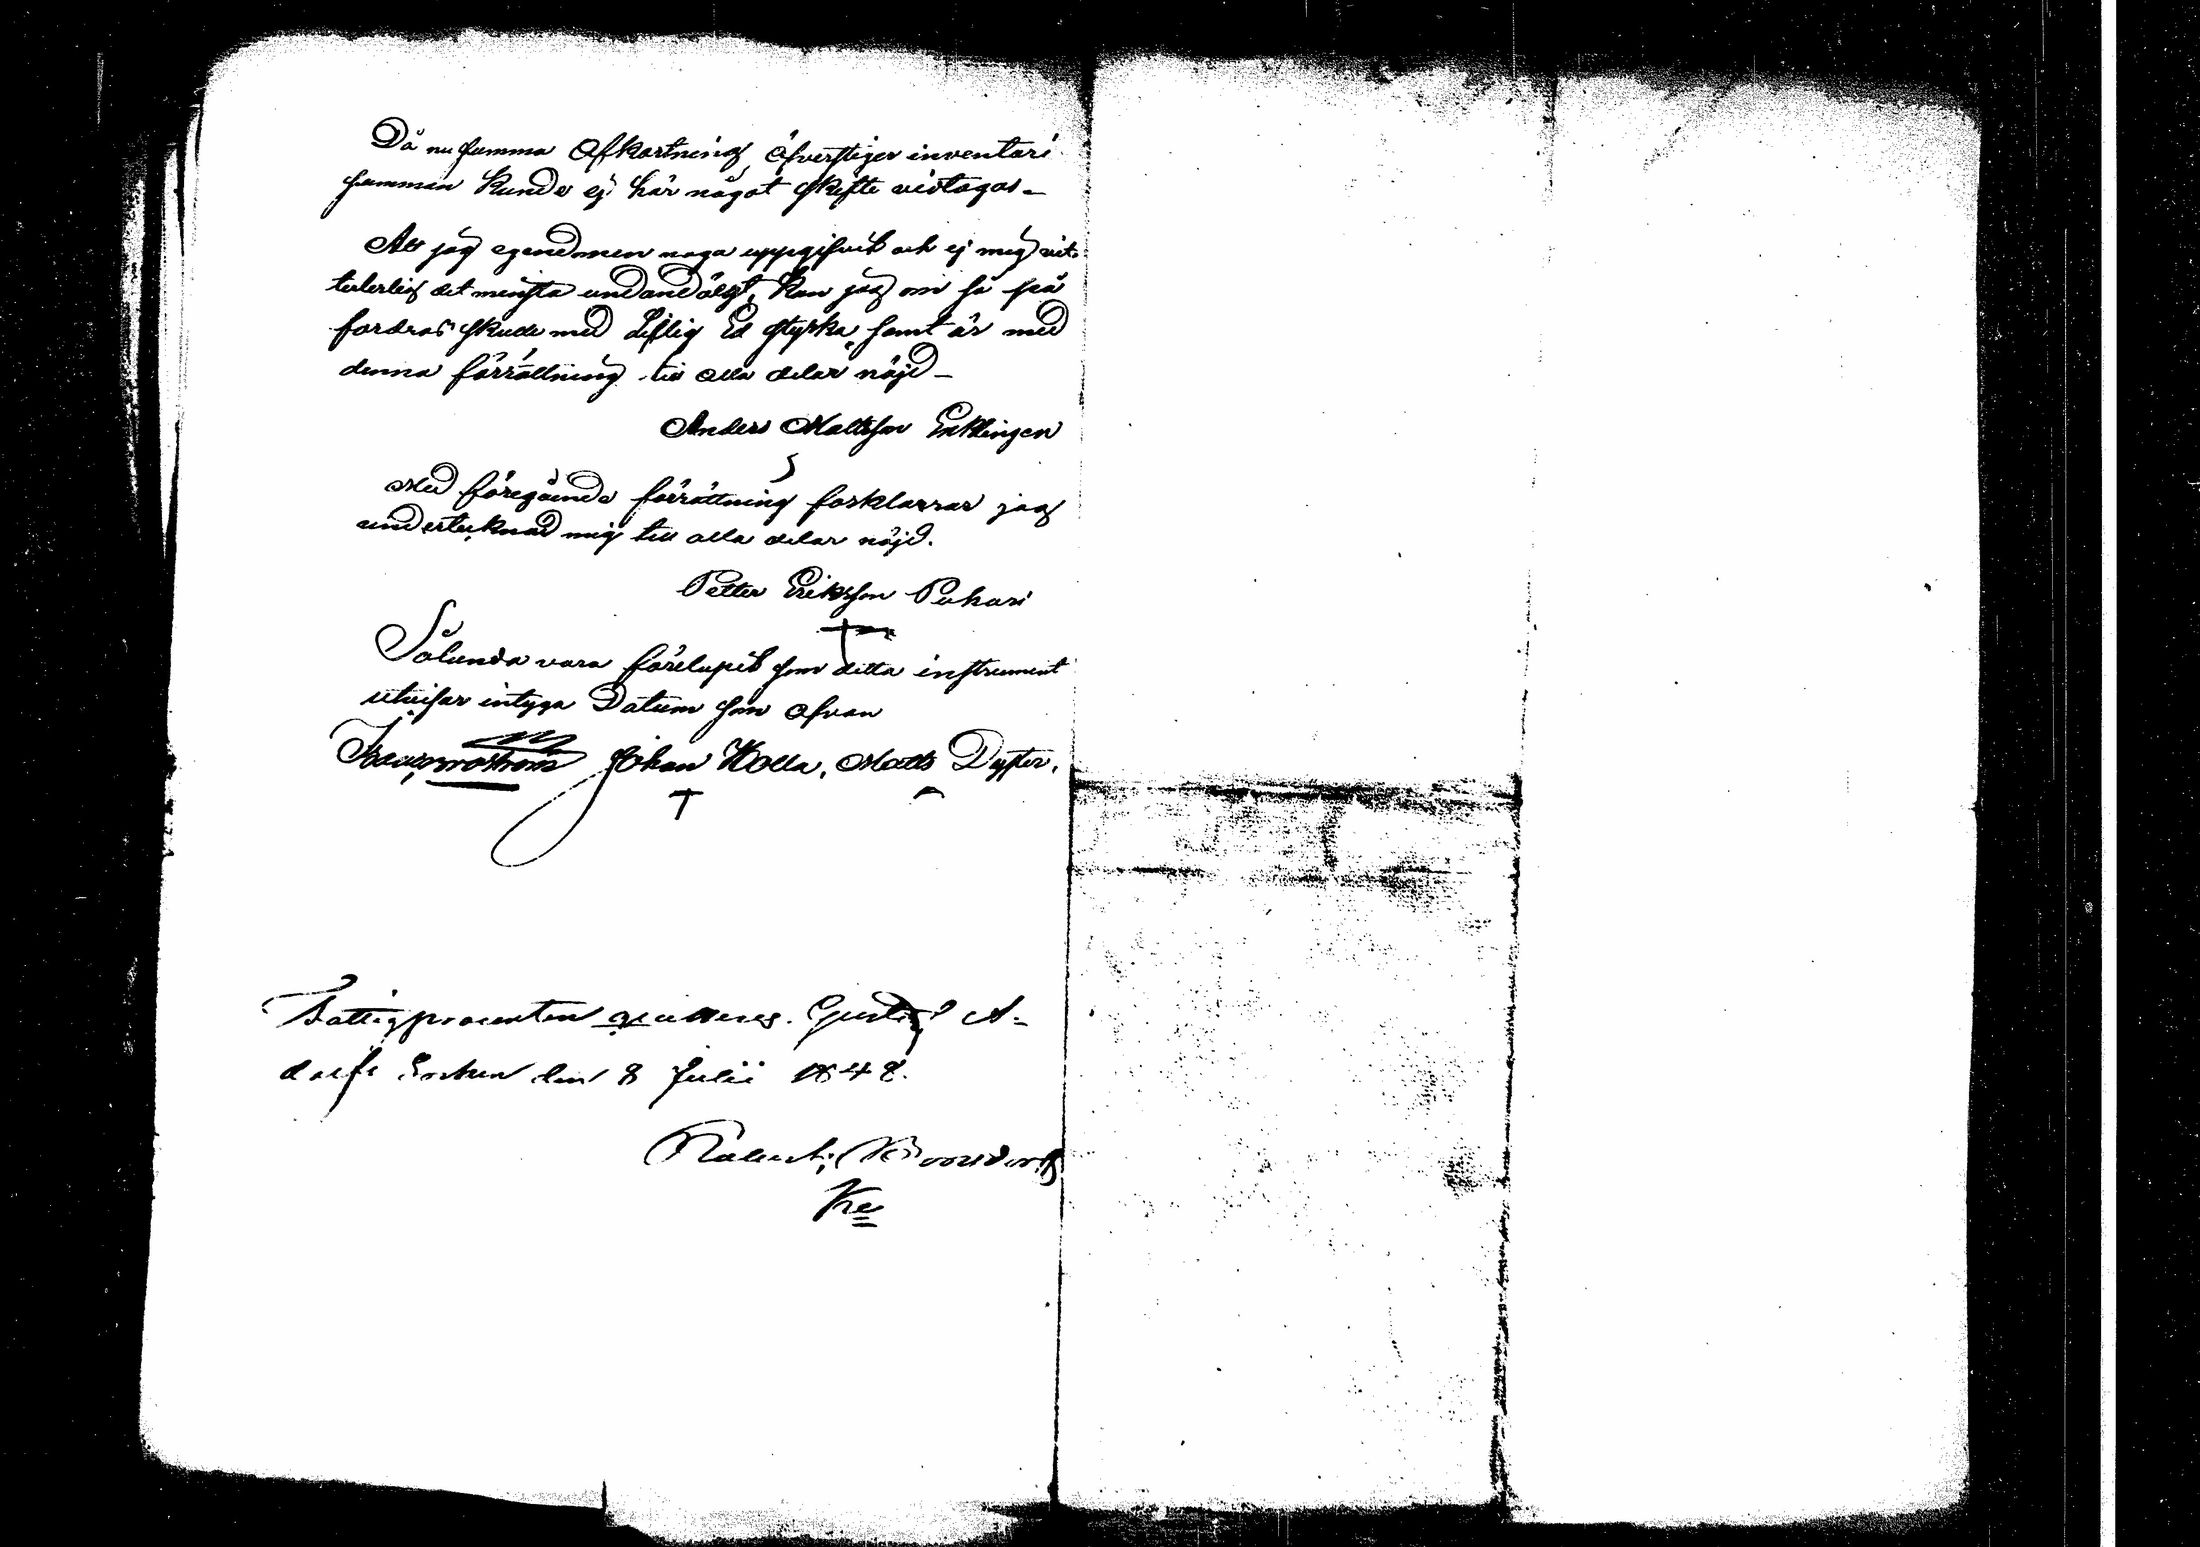 Då nu summa Afkortning öfverstiger inventari
summan kunde ej här något skifte vidtagas –
Att jag egendomen noga uppgifvit och ej mig vit-
terlerlig det minsta undandölgt, kan jag om så på
fordras skude med Liflig Ed styrka, samt är med
denna förrättning till alla delar nöjd –
Anders Mattsson Enklingen
Med föregående förrättning forklarrar jag
undertecknad mig till alla delar nöjd.
Petter Eriksson Puhari
Sålunda vara förelupit som detta instrument
utvisar intyga Datum som ofvan
Johan Kolla, Matts Dyster,
Fattigprocenten qvitteras. Gustaf A-
dolfs Socken den 8 Julii 1848.